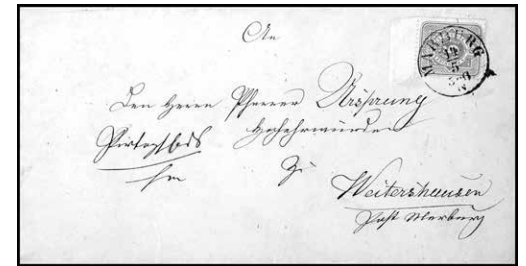 An
MARBURG
Den Herrn Pfarrer Ursprung
Hochehrwürden
zu
Weitershausen
Post Marburg